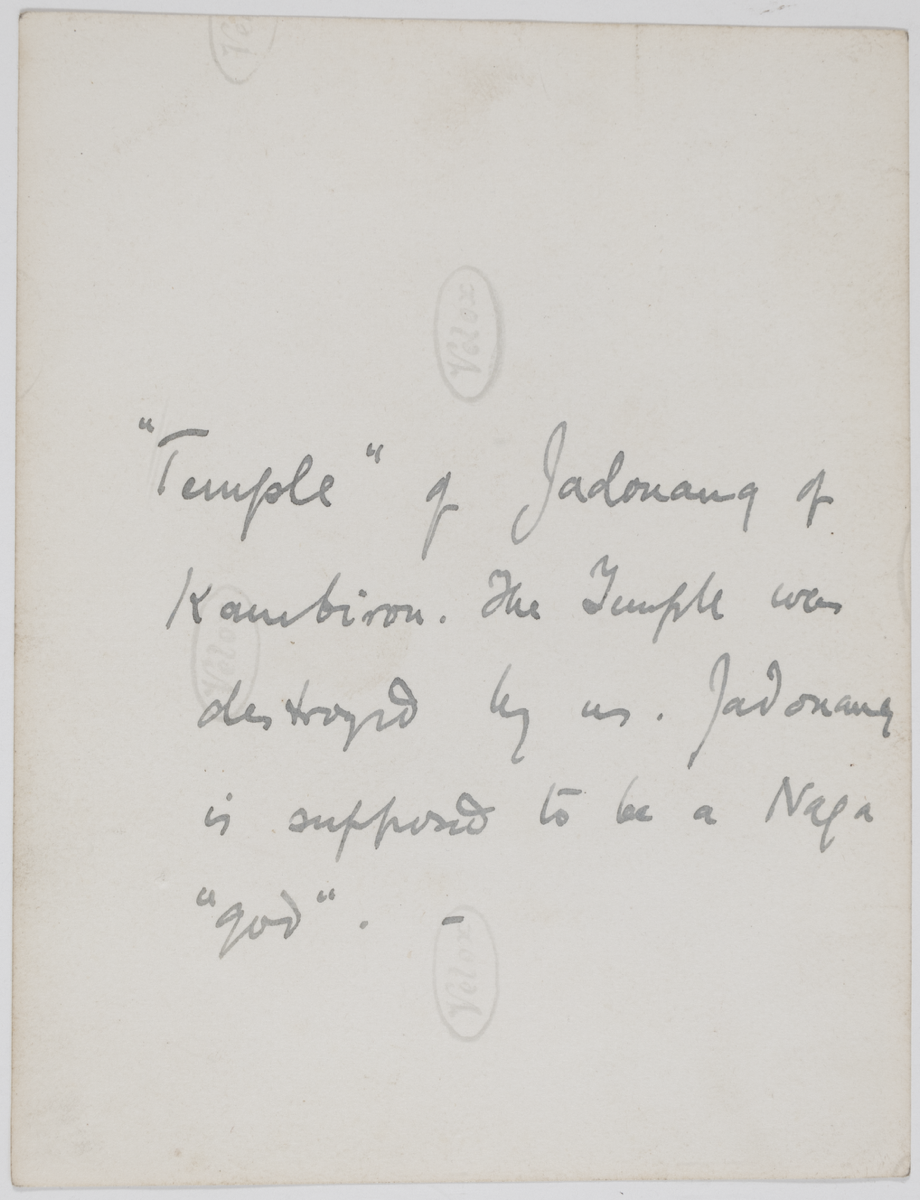 Velox
"Temple" of Jadonang of
Kambiron. The Temple was
Velox
destroyed by us. Jadonang
is supposed to be a Naga
"god". -
Velox